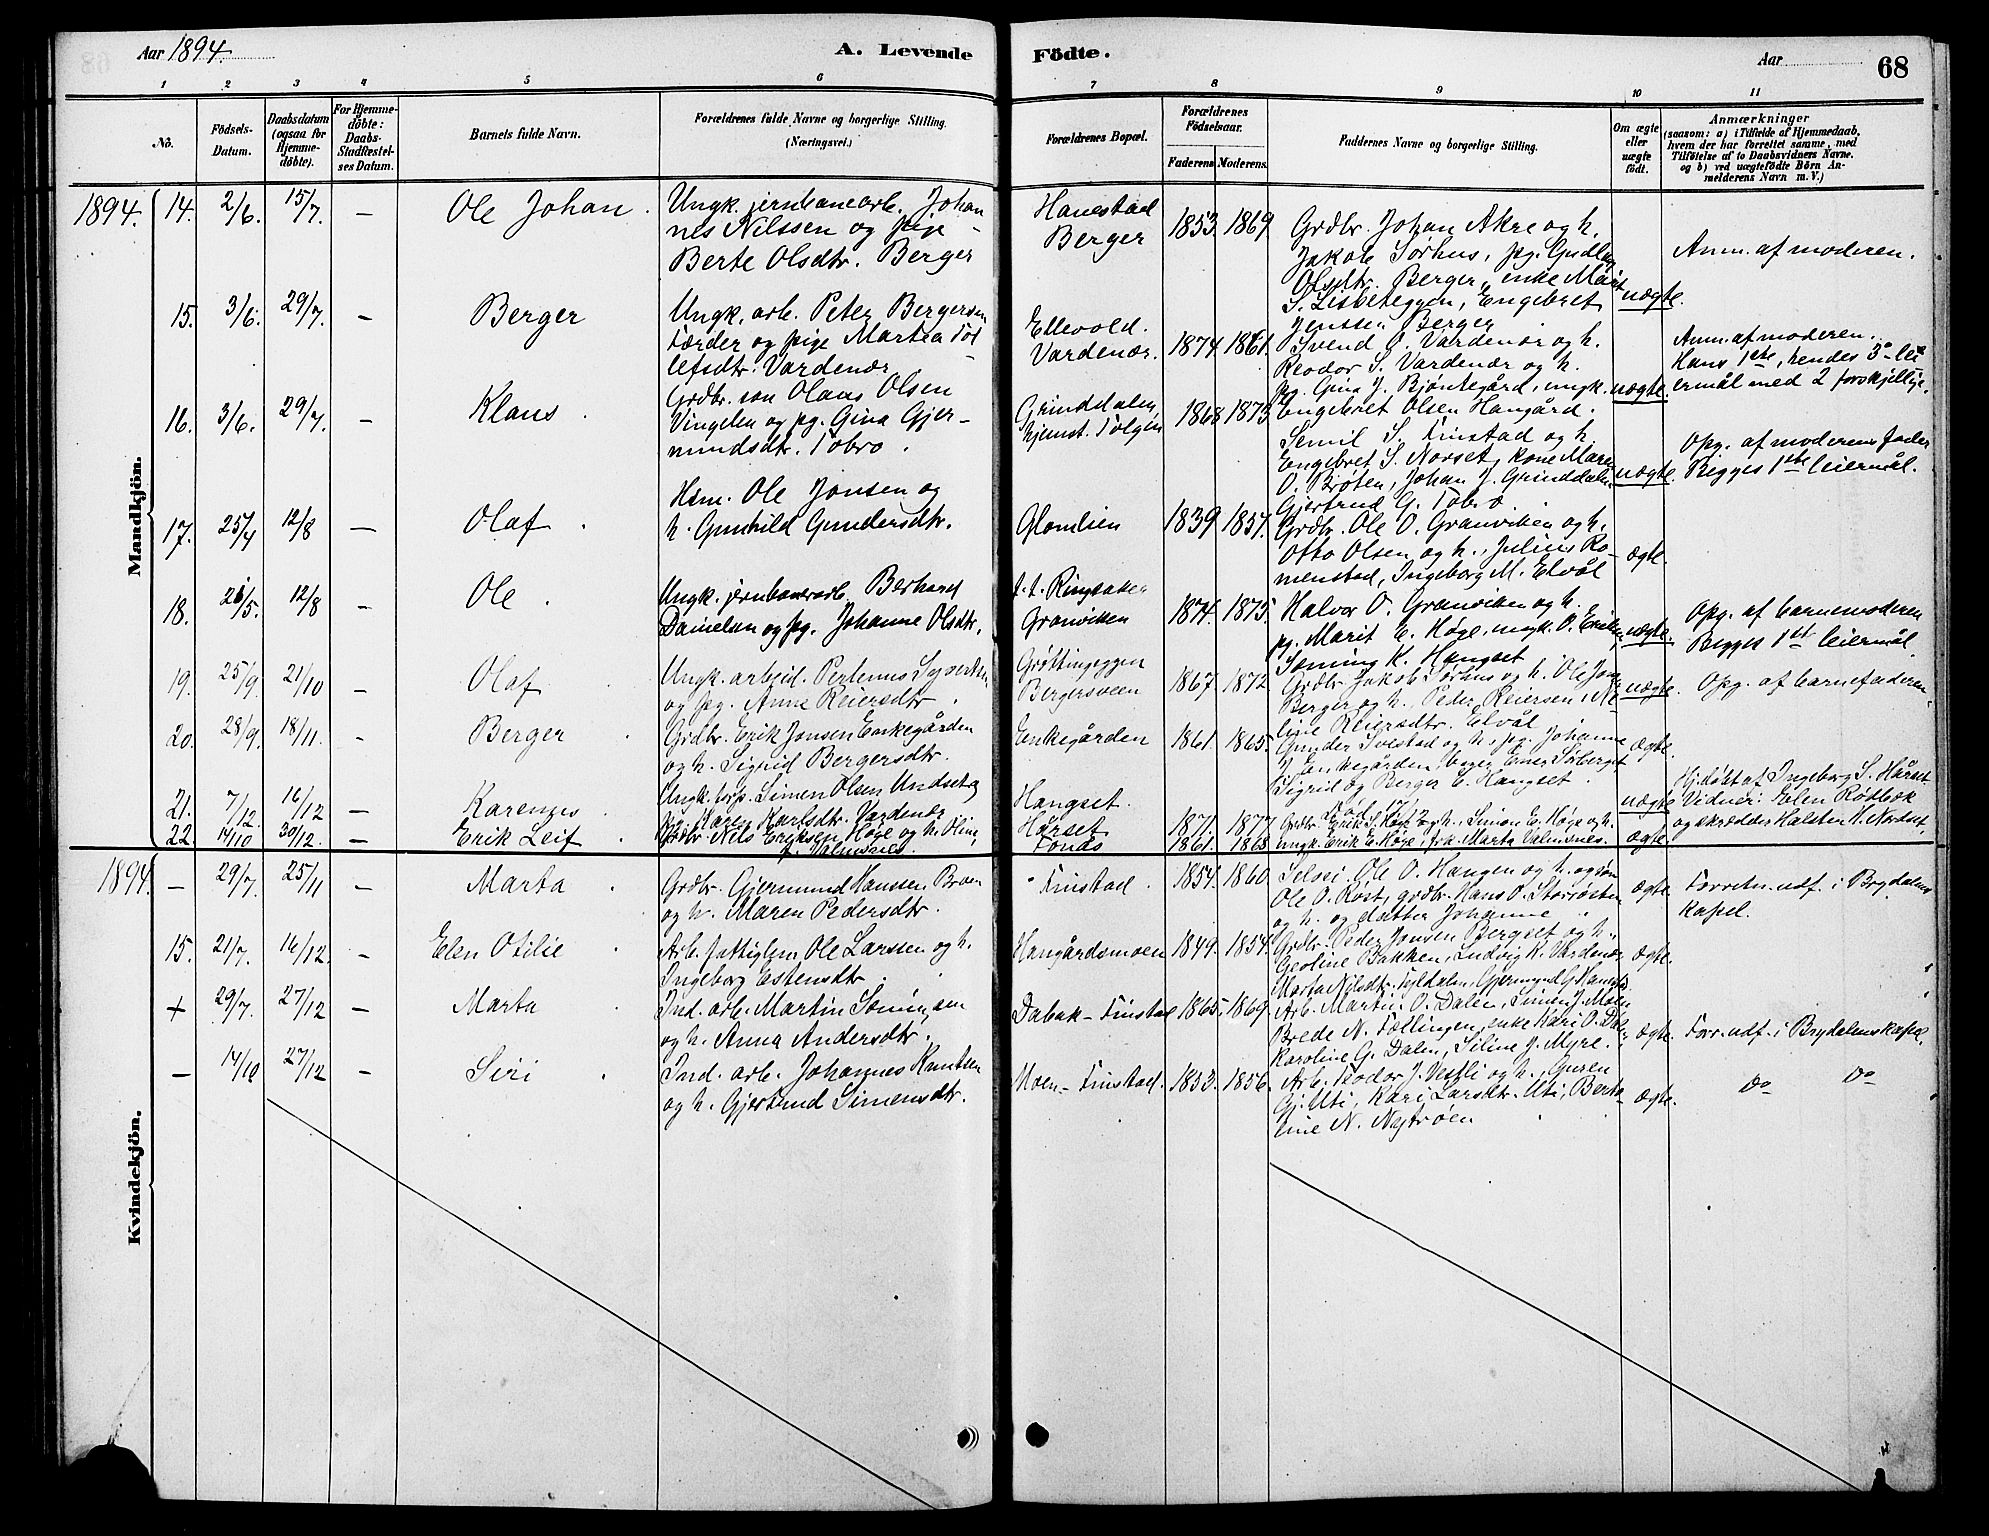 Aar 1894.
A. Levende
Födte.
Aar
68
1 2 3 4 5 6
7 8 9 10 11
No.
Födsels-Datum.
Daabsdatum (ogsaa for Hjemmedöbte).
For Hjemmedöbte: Daabs-Stadfæstelses Datum.
Barnets fulde Navn.
Forældrenes fulde Navne og borgerlige Stilling.
(Næringsvei.)
Forældrenes Bopæl.
Forældrenes Födselsaar.
Faderens Moderens.
Faddernes Navne og borgerlige Stilling.
Om ægte eller uægte födt.
Anmærkninger
(saasom: a) i Tilfælde af Hjemmedaab, hvem der har forrettet samme, med Tilföielse af to Daabsvidners Navne. og b) ved uægtefödte Börn Anmelderens Navn m. V.)
Mandkjön.
1894. 14. 2/6. 15/7. – Ole Johan.
Ungk. jernbanearb. Johan
nes Nilssen og pige
Berte Olsdtr. Berger
Hanestad
Berger
1853. 1869.
Grdbr. Johan Akre og h.
Jakob Sørhus, pg. Gudlaug
Olsdtr. Berger, enke Marit
S. Lisbeteggen, Engebret
Jenssen Berger
uægte.
Anm. af moderen.
15. 3/6. 29/7. – Berger
Ungk. arb. Peter Bergersen
Færder og pige Martea Tol
lefsdtr. Vardenær
Ellevold.
Vardenær.
1874. 1861.
Svend O. Vardenær og h.
Reodor S. Vardenær og h.
pg. Gina J. Bjøntegård, ungk.
Engebret Olsen Hangård.
uægte.
Anm. af moderen.
Hans 1ste, hendes 3die lei
ermål med 2 forskjellige.
16. 3/6. 29/7. – Klaus.
Grdbr. søn Olaus Olsen
Vingelen og pg. Gina Gjer-
mundsdtr. Tobro.
Grinddalen,
hjemst. Tolgen
1868 1873
Semil S. Finstad og h.
Engebret S. Norset, kone Maren
O. Brøten, Johan J. Grinddalen
Gjertrud G. Tobrø.
uægte.
Opg. af moderens fader
Begges 1ste leiermål.
17. 25/4 12/8 – Olaf.
Hsm. Ole Jonsen og
h. Gunhild Gundersdtr.
Glomlien
1839 1857.
Grdbr. Ole O. Granviken og h.
Otto Olsen og h., Julius Ro-
menstad, Ingeborg M. Elvål
ægte.
18. 26/5. 12/8 – Ole.
Ungk. jernbanearb. Berhard
Danielsen og pg. Johanne Olsdtr.
f. t. Ringsaker
Granviken
1874. 1875.
Halvor O. Granviken og h.
pg. Marit E. Høge, ungk. O. Erlien,
Søming K. Hangset
uægte.
Opg. af barnemoderen
Begges 1st leiermål.
19. 25/9. 21/10 – Olaf.
Ungk. arbejd. Pertenus Syvertsen
og pg. Anne Reiersdtr.
Grøttingeggen
Bergersveen
1867. 1872.
Grdbr. Jakob Sørhus og h. Ole Jons
Berger og h., Peder Reiersen, Ni
line Reiersdtr. Elvål
uægte.
Opg. af barnefaderen
20. 28/9. 18/11. – Berger.
Grdbr. Erik Jonsen Enkegården
og h. Sigrid Bergersdtr.
Enkegården
1861. 1865.
Gunder Tolstad og h., pg. Johanne
J. Enkegården, Einer Søberget,
Sigrid og Berger E. Hangset.
ægte.
21. 7/12. 16/12 – Karenus
Ungk. Simen Olsen Undset og
pg. Karen Karlsdtr. Vardenær
Hangset.
Hårset
1871. 1877
uægte
Hjdøbt af Ingeborg S. Hårset
Vidner: Elen Røtbæk
og skrædder Halsten H. Nordset.
22. 14/10 30/12. – Erik Leif.
Grdbr. Nils Eriksen Høge og h. Oline
f. Valmsnes.
Fonås
1861. 1868
Grdbr. Erik S. Høge og h., Simon E. Høge og h.
ungk. Erik E. Høge, frk. Marta Valmsnes.
ægte.
Kvindekjön.
1894. – 29/7. 25/11 – Marta.
Grdbr. Gjermund Hanssen Broen
og h. Maren Pedersdtr.
Finstad.
1854. 1860.
Selvei. Ole O. Haugen og h. og søn
Ole O. Røst, grdbr. Hans O. Storrøsten
og h. og datter Johanne
ægte.
Forretn. udf. i Brydalens
kapel.
15. 21/7. 16/12. – Elen Otilie.
Arb. fattiglem Ole Larssen og h.
Ingeborg Estensdtr.
Hangårdsmoen
1849. 1854.
Grdbr. Peder Jonsen Bergset og h.,
Geoline Bakken, Ludvig K. Vardenær
Marta Nilsdtr. Tyldalen, Gjermund G. Hangård
ægte.
+ 29/7. 27/12 – Marta.
Ind. arb. Martin Søming sen
og h. Anna Andersdtr.
Dabak – Finstad
1865. 1869.
Arb. Martin O. Dalen, Simen J. Moen,
Brede N. Fællingen, enke Kari O. Dalen
Karoline G. Dalen, Siline J. Myre.
ægte.
Forr. udf. i Brydalens kapel.
– 14/10 27/12 – Siri.
Ind. arb. Johannes Knutsen
og h. Gjertrud Simensdtr.
Moen – Finstad.
1853. 1856.
Arb. Teodor J. Vestli og h., Guren
Gj. Uti, Kari Larsdtr. Uti, Berta-
line N. Nystrøen
ægte.
Do Do